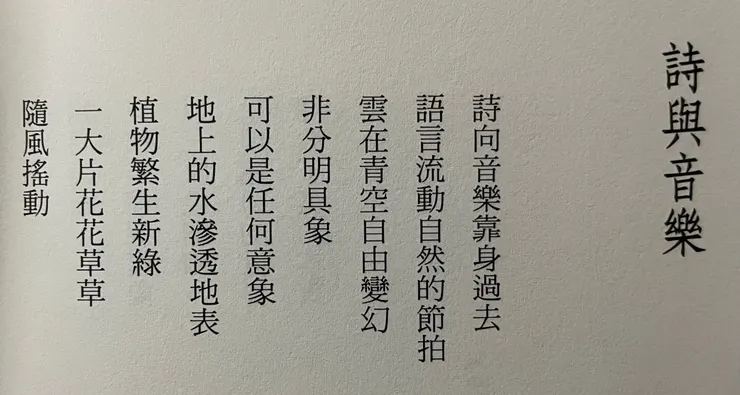 詩與音樂
詩向音樂靠身過去
語言流動自然的節拍
雲在青空自由變幻
非分明具象
可以是任何意象
地上的水滲透地表
植物繁生新綠
一大片花花草草
隨風搖動